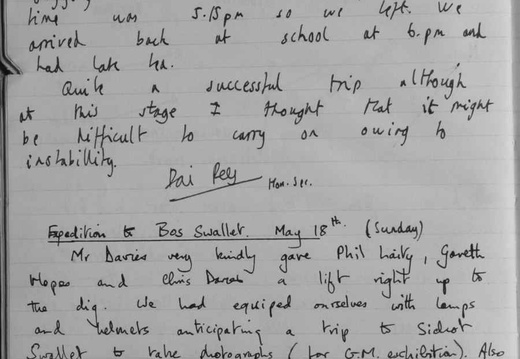 time was 5.15pm so we left. We
arrived back at school at 6.pm and
had late tea.
Quite a successful trip although
at this stage I thought that it might
be difficult to carry on owing to
instabillity.
Dai Rees
Hon. Sec.
Expedition to Bos Swallet. May 18th. (Sunday)
Mr Davies very kindly gave Phil , Gareth
and Chris Davies a lift right up to
the dig. We had equiped ourselves with lamps
and helmets anticipating a trip to Sidcot
Swallet to take photographs (for G.M. exhibition). Also